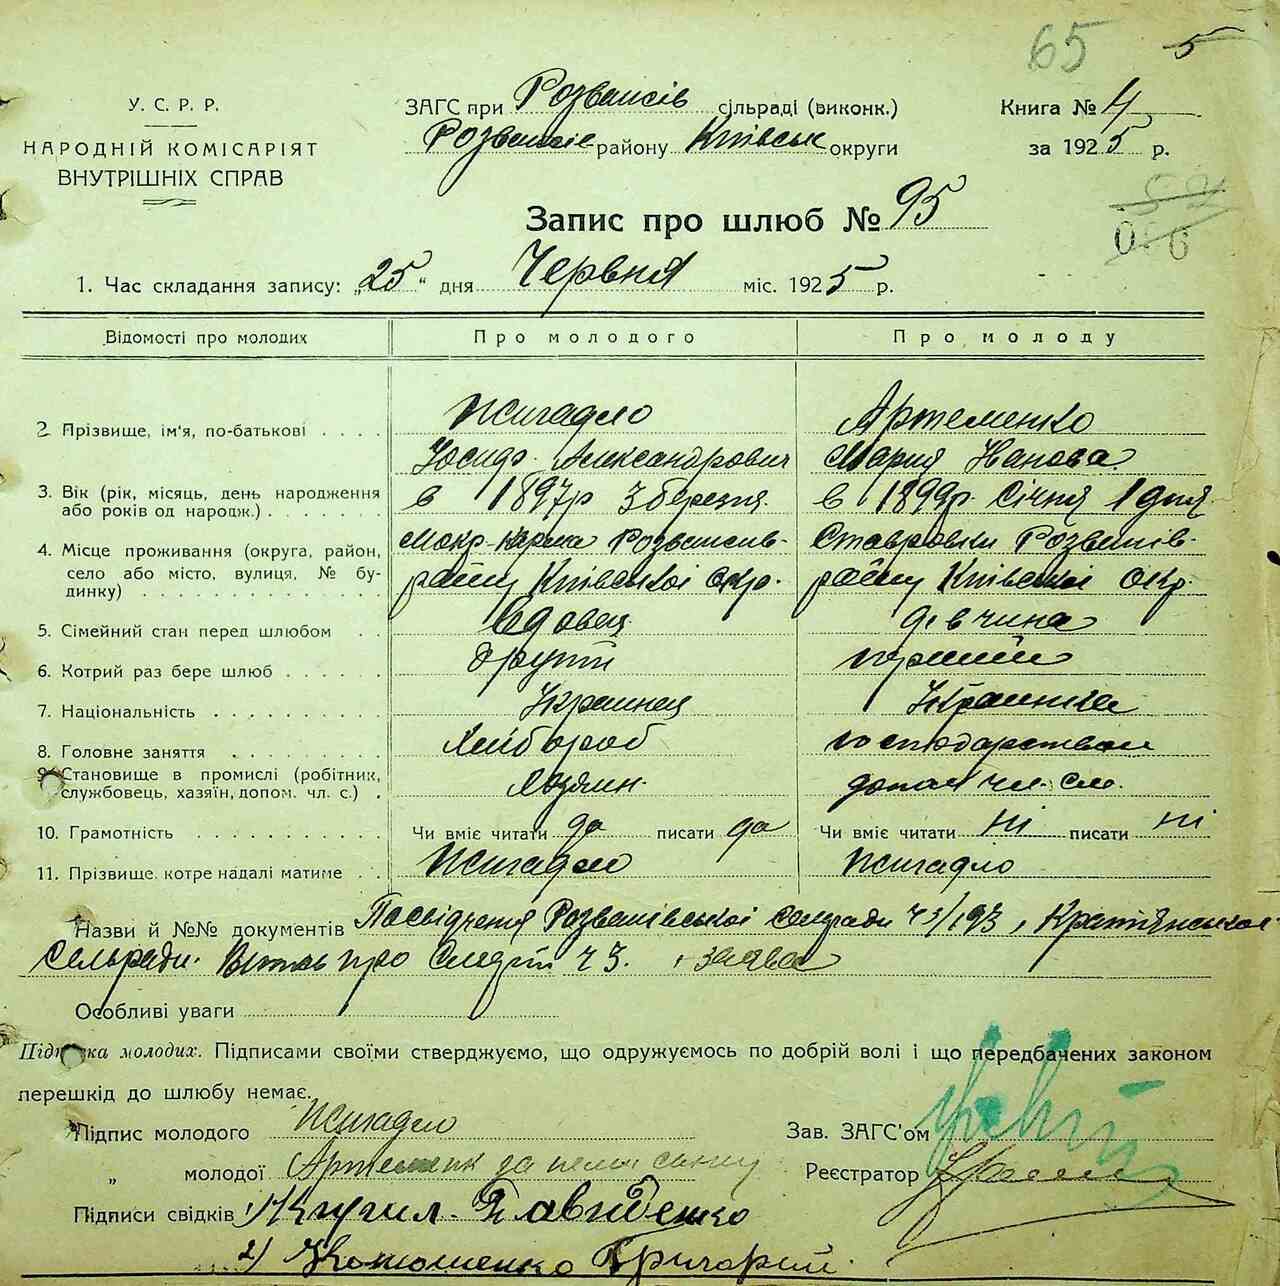 65 5
У. С. Р. Р.
НАРОДНІЙ КОМІСАРІЯТ
ВНУТРІШНІХ СПРАВ
ЗАГС при Розважів сільраді (виконк.)
Розважів району Київськ округи
Книга № 4
за 1925 р.
Запис про шлюб № 95
1. Час складання запису: „25“ дня Червня міс. 1925 р.
Відомості про молодих Про молодого Про молоду
2. Прізвище, ім'я, по-батькові . . . . Жигадло Артеменко
Йосиф. Александрович Мария Иванова
3. Вік (рік, місяць, день народження в 1897р 3 березня в 1899р. Січня 1 дня
або років од нарoдж.) . . . . . . .
4. Місце проживання (округа, район, Розважив- Ставровки Розважів-
село або місто, вулиця, № бу- району Київської окр. району Київської окр.
динку) . . . . . . . . . . . . . .
5. Сімейний стан перед шлюбом . . Вдовец дівчина
6. Котрий раз бере шлюб . . . . . . другий перший
7. Національність . . . . . . . . . . Українец Українка
8. Головне заняття . . . . . . . . . Хлібороб господарством
9. Становище в промислі (робітник, Хозяин допом чл. см.
службовець, хазяїн, допом. чл. с.) .
10. Грамотність . . . . . . . . . . . Чи вміє читати да писати да Чи вміє читати ні писати ні
11. Прізвище, котре надалі матиме . . Жигадло Жигадло
Назви й №№ документів Посвідчення Розважівської Сельради ч 3/193,
Сельради. про ч 3. і заява
Особливі уваги
Підписка молодих. Підписами своїми стверджуємо, що одружуємось по добрій волі і що передбачених законом
перешкід до шлюбу немає.
Підпис молодого Жигадло Зав. ЗАГС'ом
„ молодої Артеменк за Реєстратор
Підписи свідків 1) Кирил. Давиденко
2) Григорий.